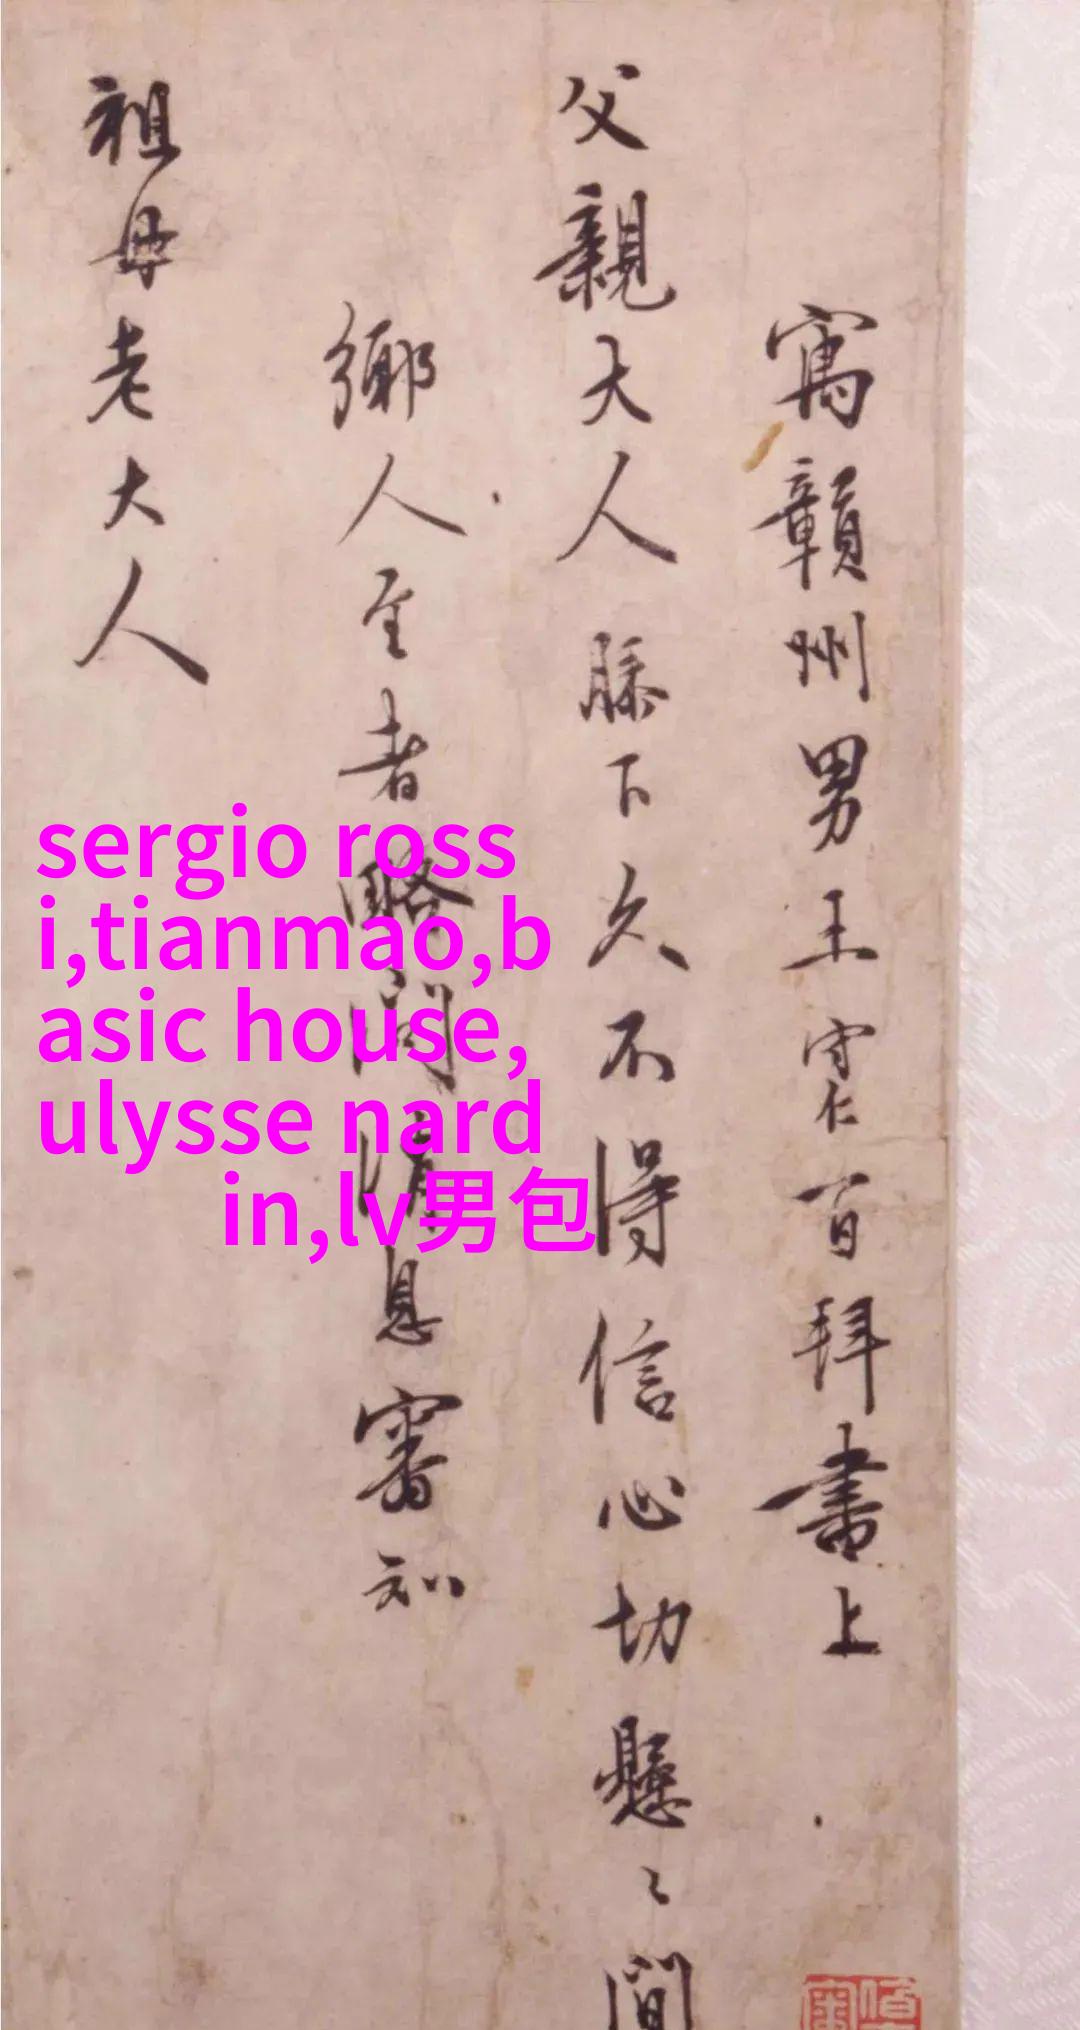 寓贛州男王守仁百拜書上
父親大人膝下久不得信心切懸〻間
鄉人至者略問消息審知
祖母老大人
sergio ross
i,tianmao,b
asic house,
ulysse nard
in,lv男包